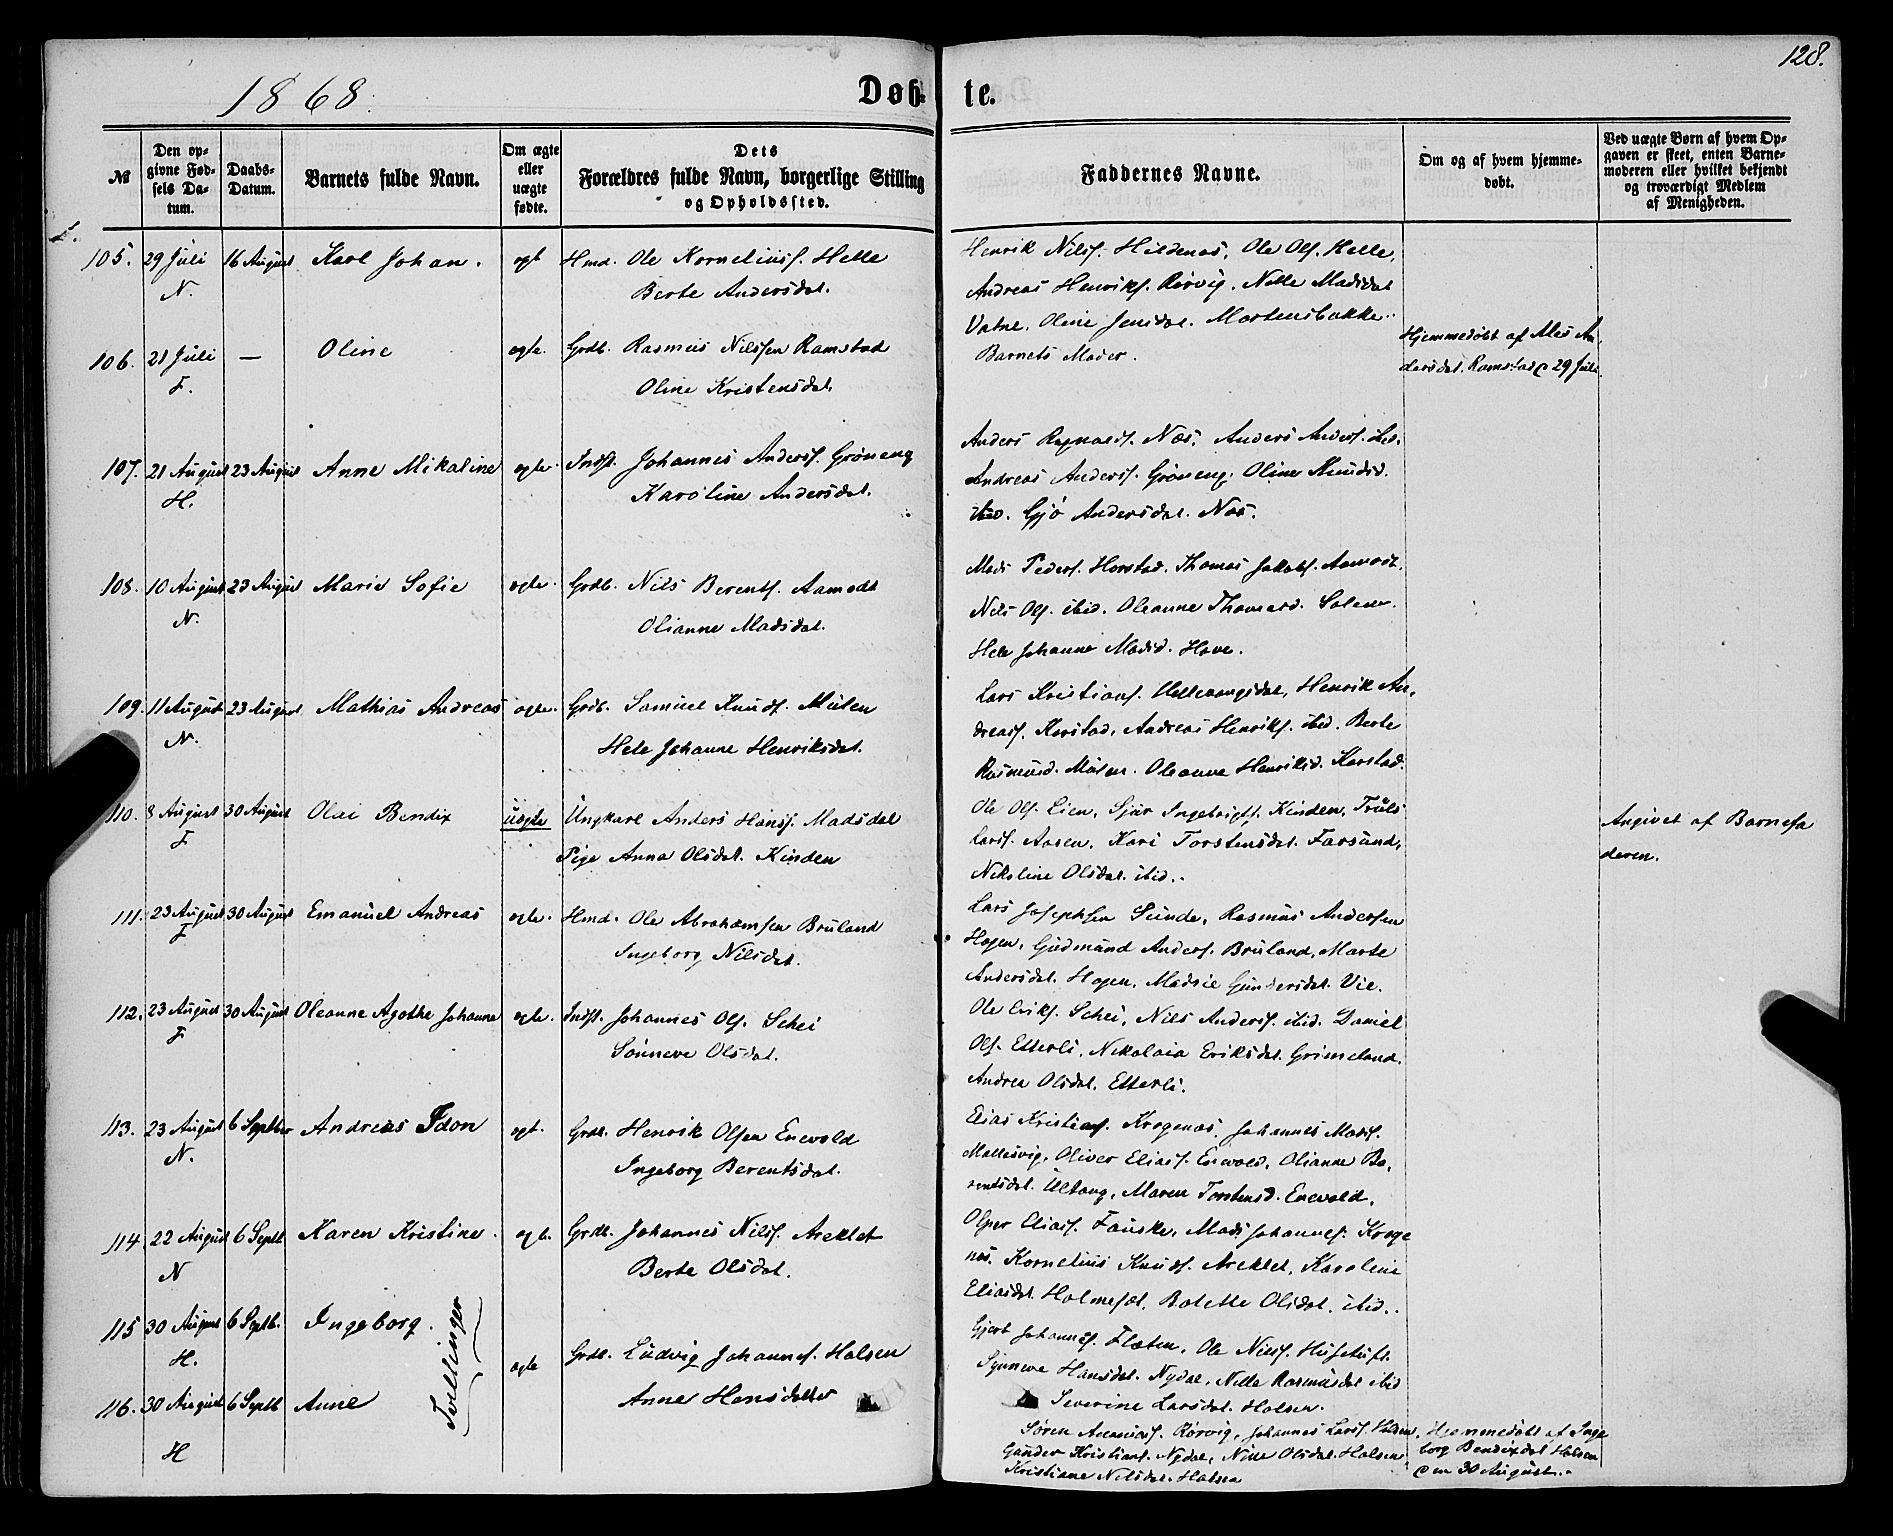 128.
1868.
Døb- te.
№
Den op-
givne Fød-
sels Da-
tum.
Daabs-
Datum.
Barnets fulde Navn.
Om ægte
eller
uægte
fødte.
Dets
Forældres fulde Navn, borgerlige Stilling
og Opholdssted.
Faddernes Navne.
Om og af hvem hjemme-
døbt.
Ved uægte Børn af hvem Op-
gaven er skeet, enten Barne-
moderen eller hvilket bekjendt
og troværdigt Medlem
af Menigheden.
105. 29 Juli 16 August Karl Johan. egt Hmd. Ole Korneliusf. Helle
N. Berte Andersdat.
Henrik Nilsf. Hildenes, Ole Olf. Helle,
Andreas Henriksf. Rørvig, Nille Madsdat
Vatne, Oline Jensdat. Mortensbakke.
Barnets Moder.
106. 21 Juli — Oline egte. Grdb. Rasmus Nilssen Ramstad
F. Oline Kristensdat.
Hjemmedøbt af Ales An,
dersdat. Ramstad 29 Juli
107. 21 August 23 August Anne Mikaline egte. Indst. Johannes Andersf. Grøneng
H. Karoline Andersdat.
Anders Ragnaldf. Næs, Anders Andersf. ibid.
Andreas Andersf. Grøneng, Oline Knudsd.
ibid. Gjø Andersdat. Næs.
108. 10 August 23 August Marie Sofie egte. Grdb. Nils Berentf. Aamodt
N. Olianne Madsdat.
Mads Pedersf. Horstad, Thomas Jakobf. Aamodt,
Nils Olf. ibid. Oleanne Thomasd. Solem.
Hele Johanne Madsd. Hove.
109. 11 August 23 August Mathias Andreas egte. Grdb. Samuel Knudf. Mulen
N. Hele Johanne Henriksdat.
Lars Kristianf. Helleangsdal, Henrik An,
dreasf. Karstad, Andreas Henrikf. ibid. Berte
Rasmusd. Mulen. Oleanne Henriksd. Karstad.
110. 8 August 30 August Olai Bendix uegte Ungkarl Anders Hansf. Madsdal
F Pige Anna Olsdat. Kinden
Ole Olf. Lien, Sjur Ingebrigtf. Kinden, Truls
Larsf. Aasen, Kari Torstensdat. Farsund,
Nikoline Olsdat. ibid.
Angivet af Barnefa
deren.
111. 23 August 30 August Emanuel Andreas egte. Hmd. Ole Abrahamsen Bruland
F Ingeborg Nilsdat.
Lars Josephsen Sunde, Rasmus Andersen
Hagen, Gudmund Andersf. Bruland, Marte
Andersdat. Hagen, Madsie Gundersdat. Vie.
112. 23 August 30 August Oleanne Agathe Johanna egte. Indst. Johannes Olf. Schei
F Sønneve Olsdat.
Ole Erikf. Schei, Nils Andersf. ibid. Daniel
Olf. Etterli, Nikolaia Eriksdat. Grimeland.
Andrea Olsdat. Etterli.
113. 23 August 6 Septber Andreas Idon egt. Grdb. Henrik Olsen Enevold
N. Ingeborg Berentsdat.
Elias Kristianf. Krogenæs, Johannes Madsf.
Mallasvig, Oliver Eliasf. Enevold, Olianne Be,
rentsdat. Ultang, Maren Torstensd. Enevold.
114. 22 August 6 Septb. Karen Kristine. egt. Grdb. Johannes Nilsf. Areklet
N Berte Olsdat.
Olger Eliasf. Fauske, Mads Johannesf. Kroge
næs. Kornelius Knudf. Areklet, Karoline
Eliasdat. Holmesæt, Batette Olsdat. ibid.
115 30 August 6 Septb. Ingeborg.
H.
Tvillinger
egte Grdb. Ludvig Johannesf. Halsen
Anne Hansdatter
Gjert Johannesf. Flaten, Ole Nilsf. Husetuft.
Synneve Hansdat. Nydal, Nille Rasmusdat ibid
Severine Larsdat. Halsen.
116. 30 August 6 Septb Anne
H
Søren Ananiasf. Rørvig, Johannes Larsf. Halsen,
Gunder Kristianf. Nydal, Nille Olsdat. Halsen,
Kristiane Nilsdat. Halsen
Hjemmedøbt af Inge
borg Bendixdat Halsen
den 30 August.